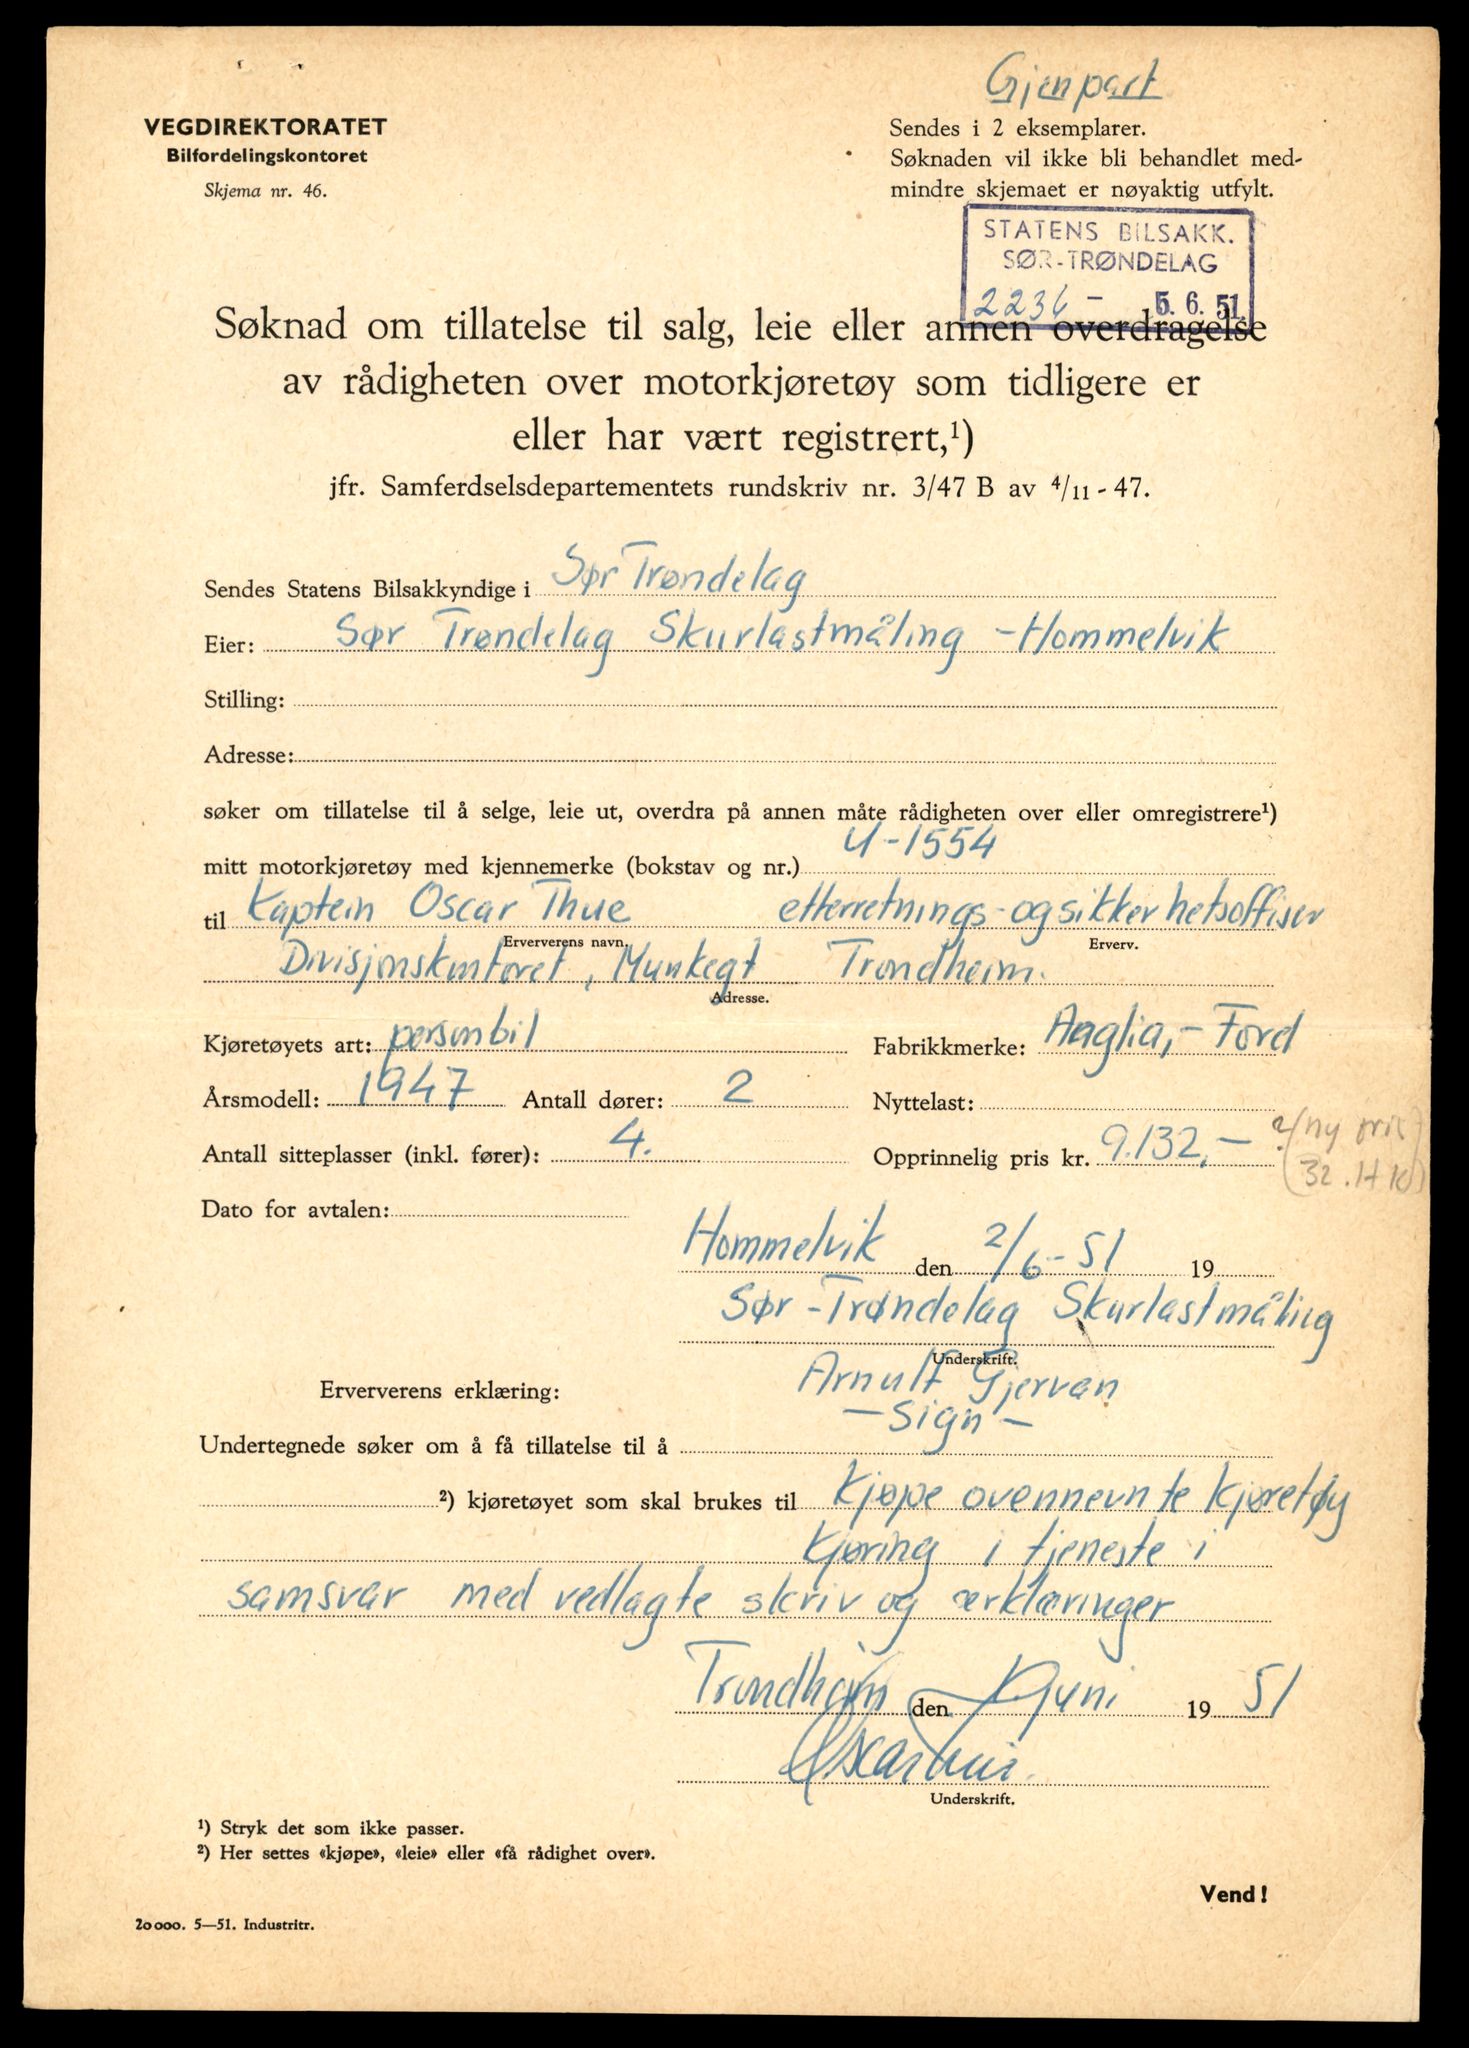 Gjenpart
VEGDIREKTORATET
Bilfordelingskontoret
Skjema nr. 46.
Sendes i 2 eksemplarer.
Søknaden vil ikke bli behandlet med-
mindre skjemaet er nøyaktig utfylt.
STATENS BILSAKK.
SØR-TRØNDELAG
2236 - 5. 6. 51
Søknad om tillatelse til salg, leie eller annen overdragelse
av rådigheten over motorkjøretøy som tidligere er
eller har vært registrert,¹)
jfr. Samferdselsdepartementets rundskriv nr. 3/47 B av 4/11 - 47.
Sendes Statens Bilsakkyndige i Sør Trøndelag
Eier: Sør Trøndelag Skurlastmåling - Hommelvik
Stilling:
Adresse:
søker om tillatelse til å selge, leie ut, overdra på annen måte rådigheten over eller omregistrere¹)
mitt motorkjøretøy med kjennemerke (bokstav og nr.) U-1554
til Kaptein Oscar Thue etterretnings- og sikkerhetsoffiser
Erververens navn. Erverv.
Divisjonskontoret, Munkegt Trondheim.
Adresse.
Kjøretøyets art: personbil Fabrikkmerke: Anglia, - Ford
Årsmodell: 1947 Antall dører: 2 Nyttelast:
Antall sitteplasser (inkl. fører): 4. Opprinnelig pris kr. 9.132,- ? (ny pris
32. H K)
Dato for avtalen:
Hommelvik den 2/6-51 19
Sør-Trøndelag Skurlastmåling
Underskrift.
Arnulf Gjervan
- Sign -
Erververens erklæring:
Undertegnede søker om å få tillatelse til å
²) kjøretøyet som skal brukes til kjøpe ovennevnte kjøretøy
kjøring i tjeneste i
samsvar med vedlagte skriv og ærklæringer
Trondheim den Juni 19 51
Oscar Thue.
Underskrift.
¹) Stryk det som ikke passer.
²) Her settes «kjøpe», «leie» eller «få rådighet over».
Vend!
20 000. 5—51. Industritr.